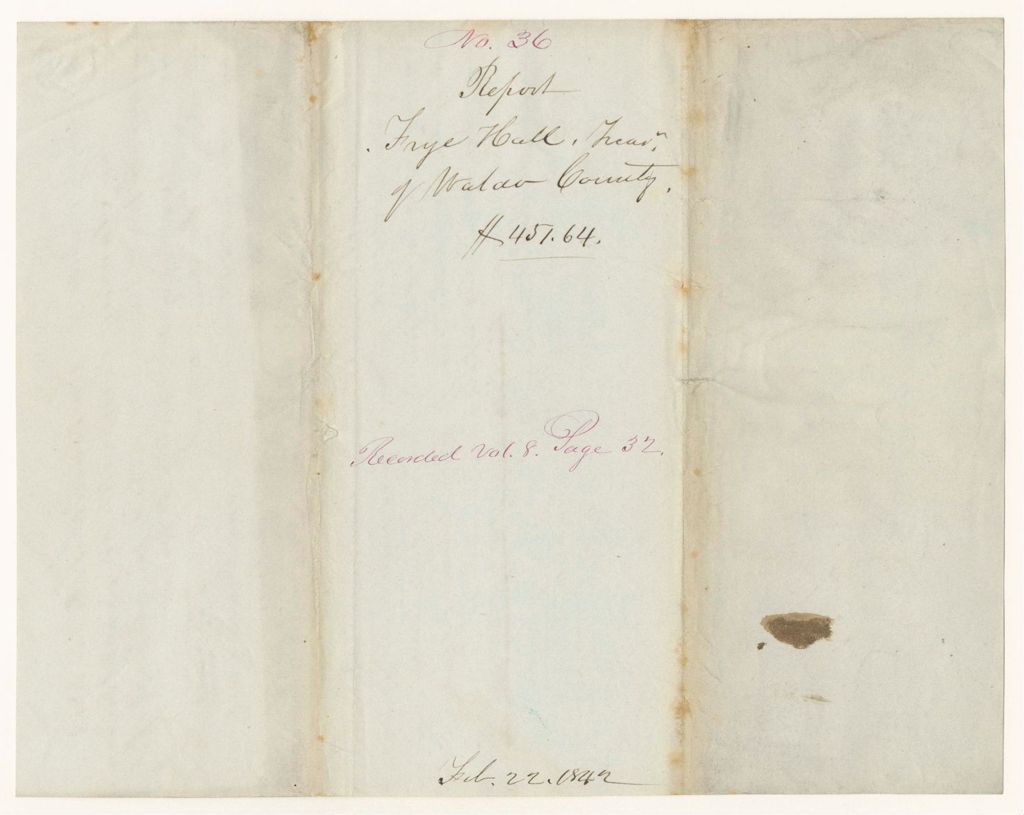 No. 36
Report
Frye Hall, Treasr.
of Waldo County.
$451.64.
Recorded Vol. 8. Page 32.
Feb. 22. 1842